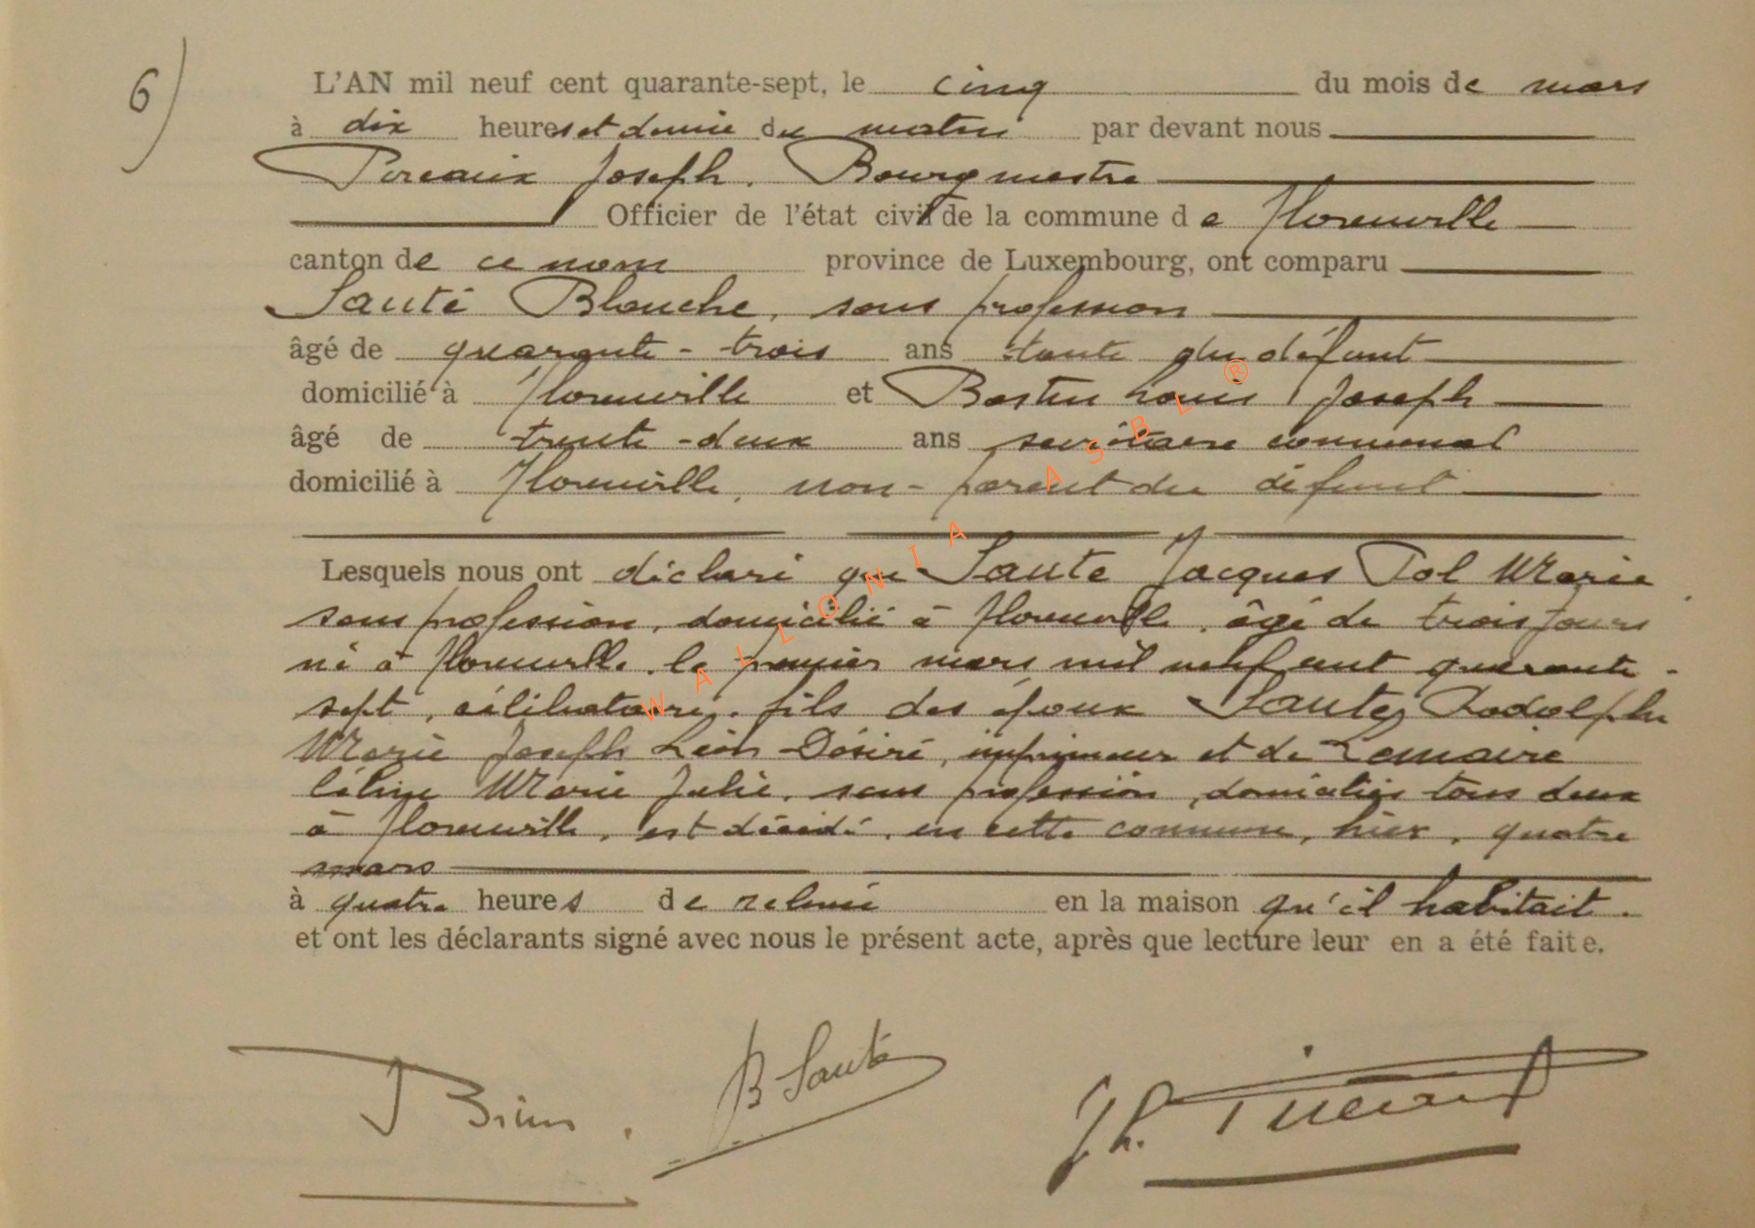 6)
L'AN mil neuf cent quarante-sept, le cinq du mois de mars
à dix heures et demie du matin par devant nous
Pireaux Joseph. Bourgmestre
Officier de l'état civil de la commune de Florenville
canton de ce nom province de Luxembourg, ont comparu
Sauté Blanche, sans profession
âgé de quarante-trois ans tante du défunt
domicilié à Florenville et Bastin Louis Joseph
âgé de trente-deux ans secrétaire communal
domicilié à Florenville, non-parent du défunt
Lesquels nous ont déclaré que Sauté Jacques Pol Marie
sans profession, domicilié à Florenville, âgé de trois jours
né à Florenville, le premier mars mil neuf cent quarante-
sept, célibataire, fils des époux Sauté, Rodolphe
Marie Joseph Léon Désiré, imprimeur et de Lemaire
Céline Marie Julie, sans profession, domiciliés tous deux
à Florenville, est décédé, en cette commune, hier, quatre
mars
à quatre heures de relevée en la maison qu'il habitait.
et ont les déclarants signé avec nous le présent acte, après que lecture leur en a été faite.
B Sauté
WALLONIA ASBL ®